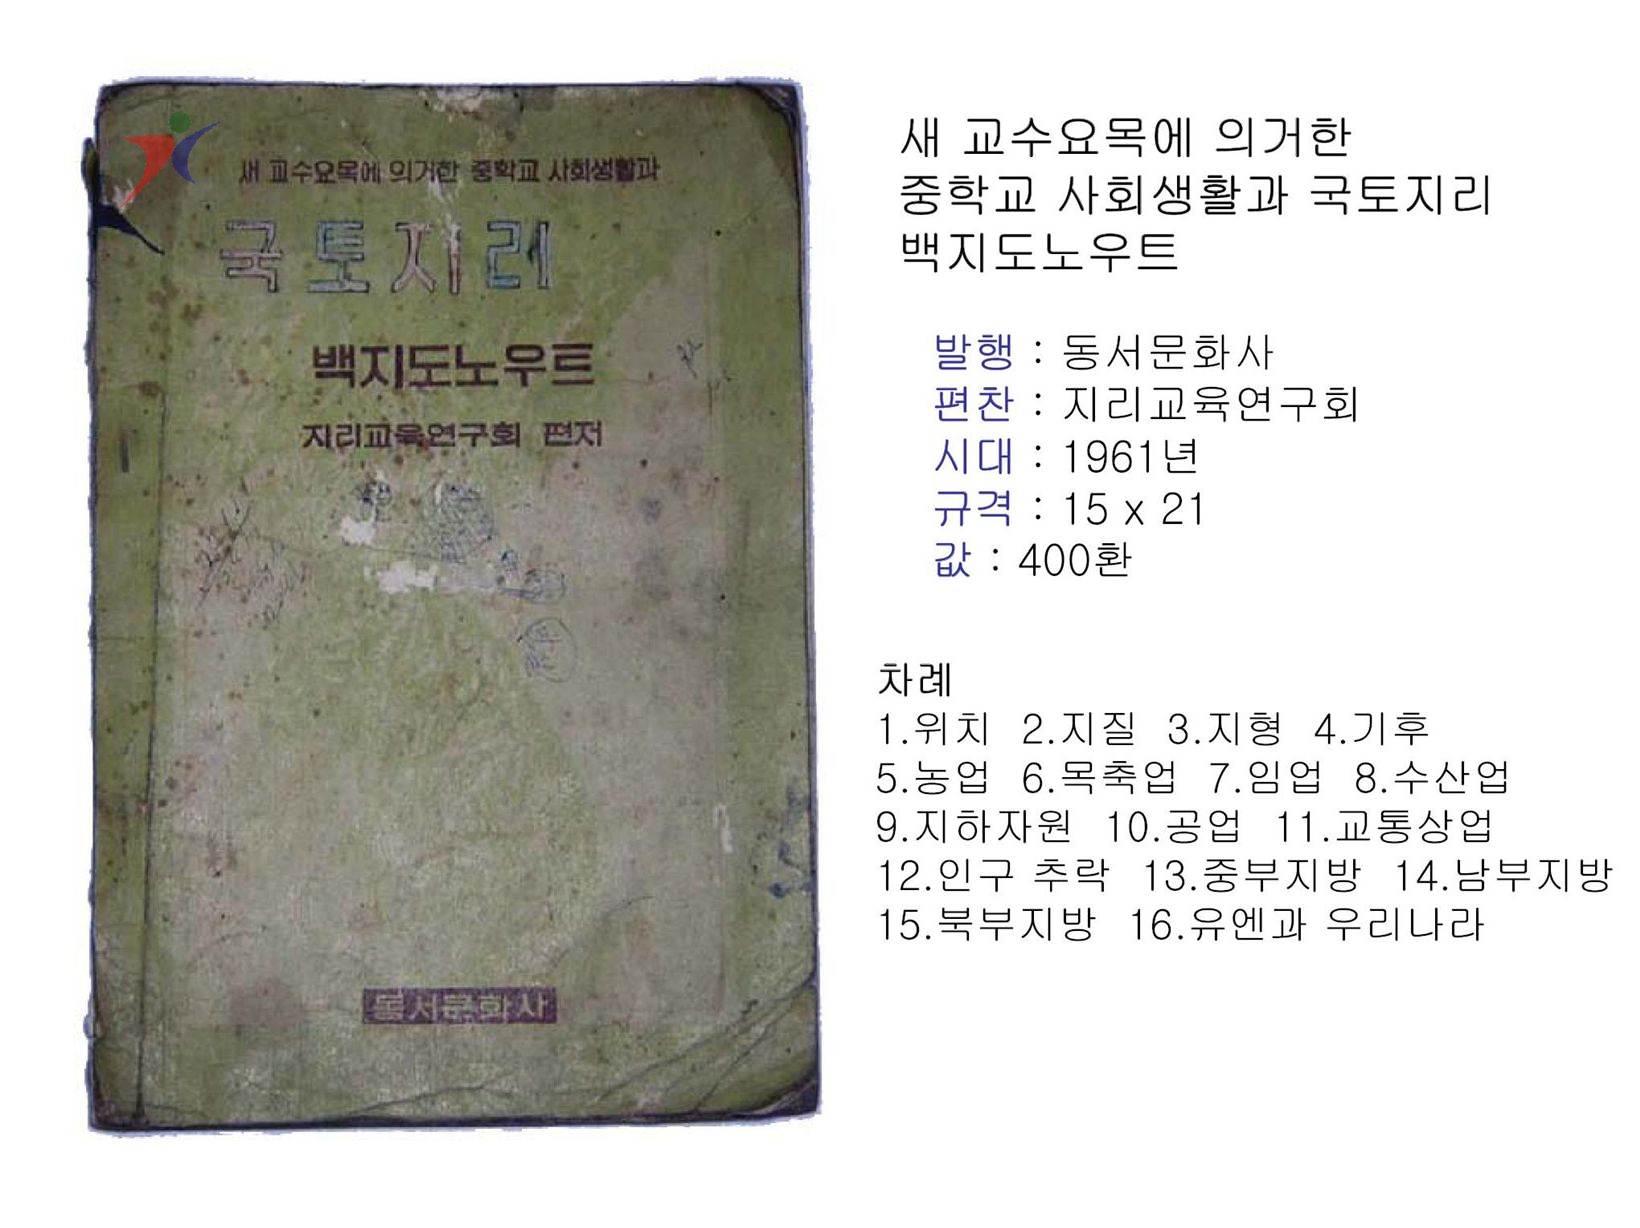 새 교수요목에 의거한 중학교 사회생활과
국토지리
백지도노우트
지리교육연구회 편저
동서문화사
새 교수요목에 의거한
중학교 사회생활과 국토지리
백지도노우트
발행 : 동서문화사
편찬 : 지리교육연구회
시대 : 1961년
규격 : 15 x 21
값 : 400환
차례
1.위치 2.지질 3.지형 4.기후
5.농업 6.목축업 7.임업 8.수산업
9.지하자원 10.공업 11.교통상업
12.인구 추락 13.중부지방 14.남부지방
15.북부지방 16.유엔과 우리나라